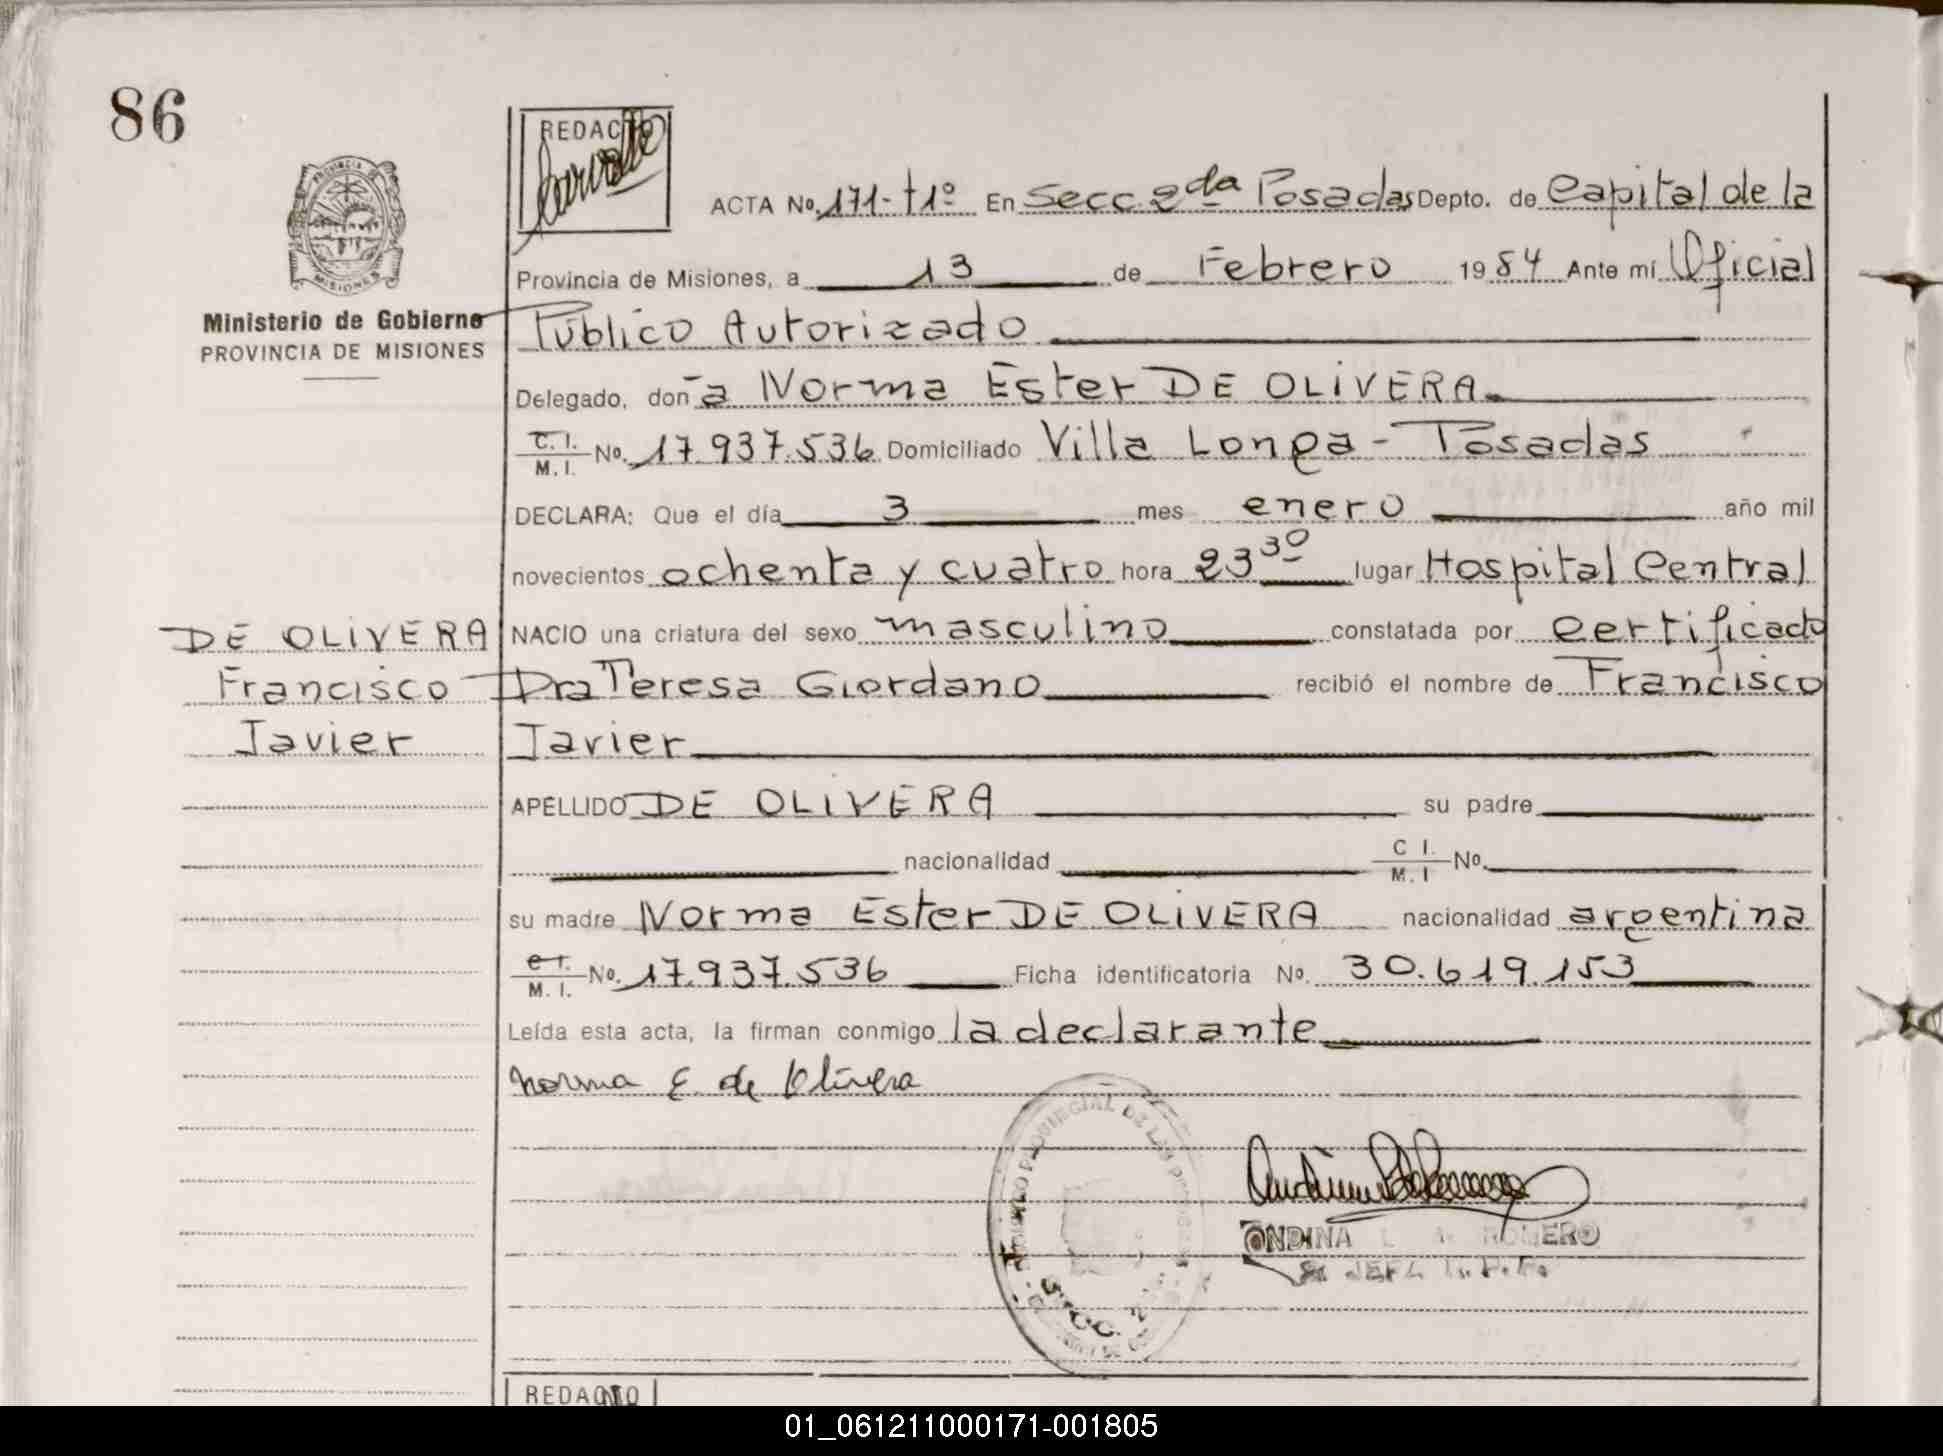 86
REDACTO
PROVINCIA DE
MISIONES
Ministerio de Gobierno
PROVINCIA DE MISIONES
ACTA No. 171-t1º En Secc 2da Posadas Depto. de Capital de la
Provincia de Misiones, a 13 de Febrero 1984 Ante mí Oficial
Público Autorizado
Delegado, doña Norma Ester DE OLIVERA
C. I. / M. I. No. 17.937.536 Domiciliado Villa Longa - Posadas
DECLARA: Que el día 3 mes enero año mil
novecientos ochenta y cuatro hora 23 30 lugar Hospital Central
NACIO una criatura del sexo masculino constatada por certificado
Dra Teresa Giordano recibió el nombre de Francisco
Javier
DE OLIVERA
Francisco
Javier
APELLIDO DE OLIVERA su padre
nacionalidad C I. / M. I No.
su madre Norma Ester DE OLIVERA nacionalidad argentina
C I. / M. I. No. 17.937.536 Ficha identificatoria No. 30.619.153
Leída esta acta, la firman conmigo la declarante
Norma E. de Olivera
ONDINA L. ROMERO
SECC. 2
REDACTO
01_061211000171-001805